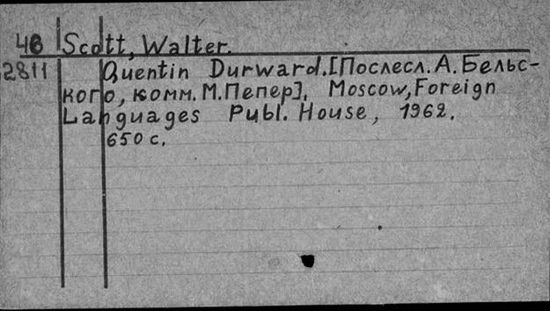 4б Scott, Walter.
2811 Quentin Durward.[Послесл. А. Бельс-
кого, комм. М. Пепер], Moscow, Foreign
Languages Publ. House, 1962.
650 с.